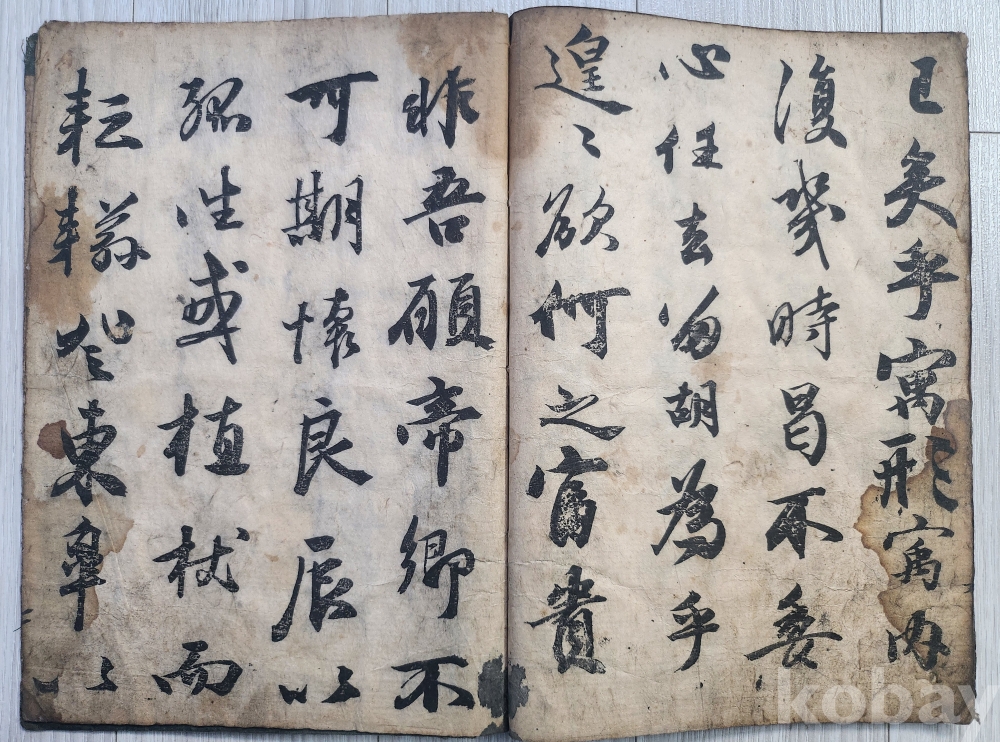 已矣乎寓形寓內
復幾時曷不委
心任去留胡為乎
遑〻欲何之富貴
非吾願帝鄉不
可期懷良辰以
孤往或植杖而
耘耔登東皋以
kobay